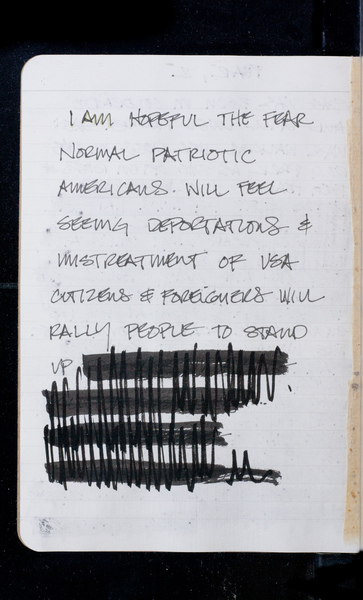 I AM HOPEFUL THE FEAR
NORMAL PATRIOTIC
AMERICANS. WILL FEEL
SEEING DEPORTATIONS &
MISTREATMENT OF USA
CITIZENS & FOREIGNERS WILL
RALLY PEOPLE TO STAND
UP